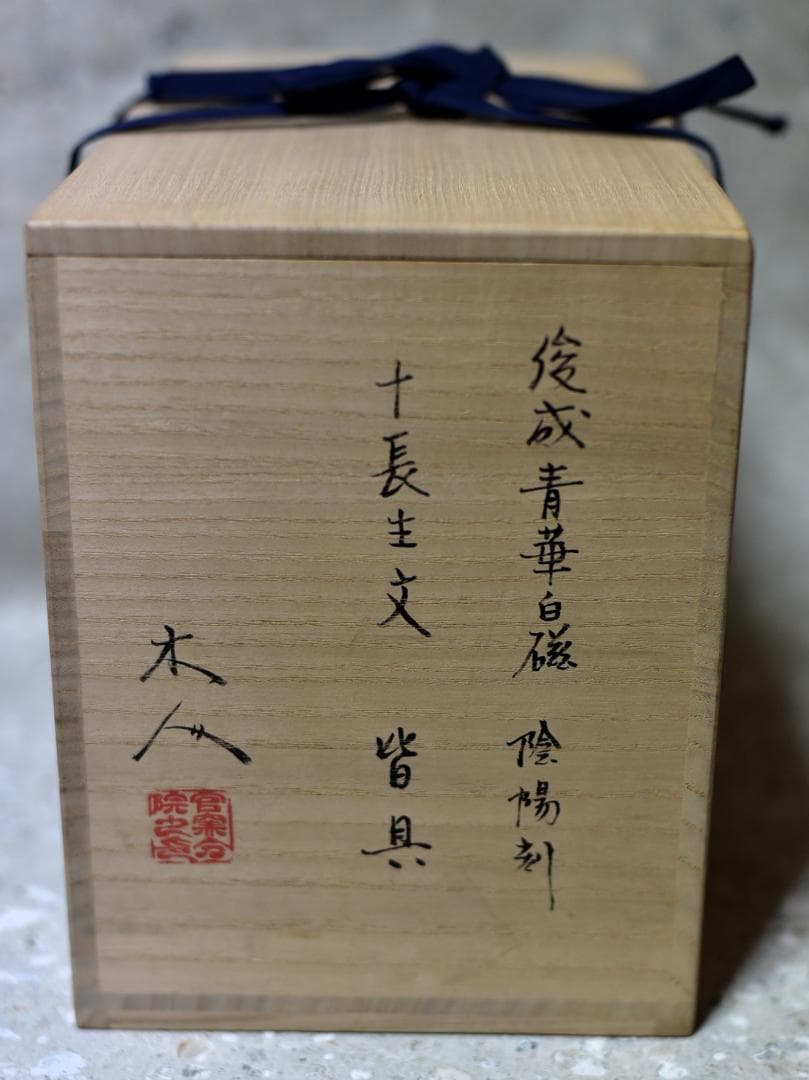 後成青華白磁 陰陽刻
十長生文 皆具
木人